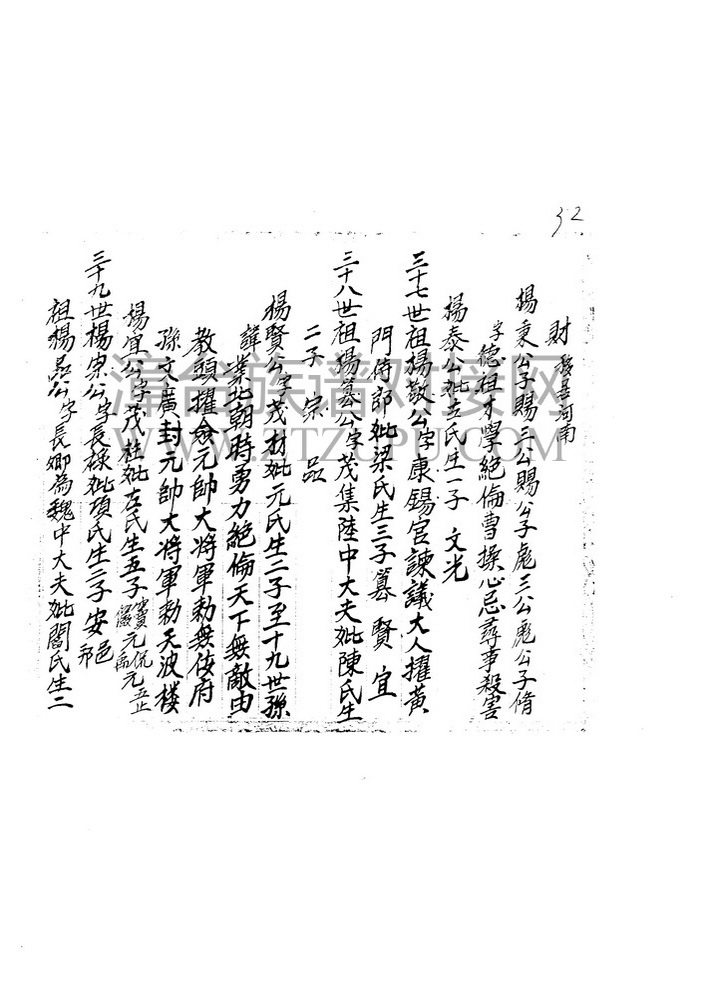 32
財移居河南
楊秉公子賜三公賜公子彪三公彪公子脩
字德祖才學絕倫曹操心忌尋事殺害
楊泰公妣左氏生一子 文光
三十七世祖楊敬公字康錫官諫議大人擢黃
門侍郎妣梁氏生三子 簒 賢 宜
三十八世祖楊簒公字茂集陸中大夫妣陳氏生
二子 宗 品
楊賢公字茂材妣元氏生二子至十九世孫
諱業北朝特勇力絕倫天下無敵由
教頭擢僉元帥大將軍勅無佞府
孫文廣封元帥大將軍勅天波楼
楊宜公字茂柱妣左氏生五子 寶 元侃 元正
儼 元禹
三十九世楊宗公字長祿妣項氏生二子 安 邑
祖楊品公字長卿為魏中大夫妣閻氏生二
漳台族谱对接网
WWW.ZTZUPU.COM